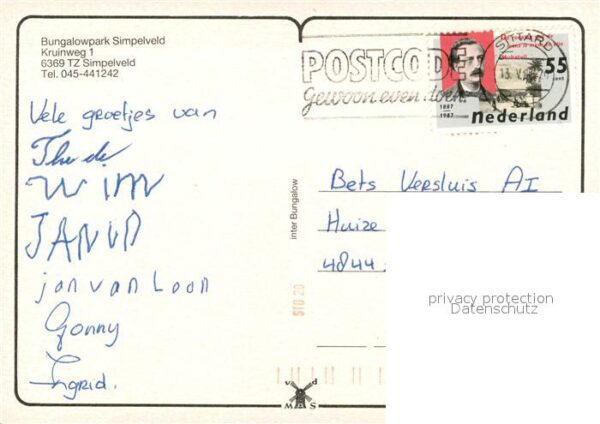 Bungalowpark Simpelveld
Kruinweg 1
6369 TZ Simpelveld
Tel. 045-441242
Vele groetjes van
Wim
jan van Loon
Gonny
Ingrid.
inter Bungalow
POSTCODE
Gewoon even doen.
SITTARD
55
cent
1887
1987
nederland
Bets Versluis AI
Huize
4844
privacy protection
Datenschutz